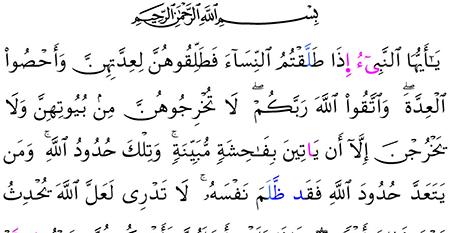 بِسْمِ ٱللَّهِ ٱلرَّحْمَـٰنِ ٱلرَّحِيمِ
يَـٰٓأَيُّهَا ٱلنَّبِىٓءُ إِذَا طَلَّقْتُمُ ٱلنِّسَآءَ فَطَلِّقُوهُنَّ لِعِدَّتِهِنَّ وَأَحْصُوا۟
ٱلْعِدَّةَ ۖ وَٱتَّقُوا۟ ٱللَّهَ رَبَّكُمْ ۖ لَا تُخْرِجُوهُنَّ مِنۢ بُيُوتِهِنَّ وَلَا
يَخْرُجْنَ إِلَّآ أَن يَاتِينَ بِفَـٰحِشَةٍ مُّبَيِّنَةٍ ۚ وَتِلْكَ حُدُودُ ٱللَّهِ ۚ وَمَن
يَتَعَدَّ حُدُودَ ٱللَّهِ فَقَد ظَّلَمَ نَفْسَهُۥ ۚ لَا تَدْرِى لَعَلَّ ٱللَّهَ يُحْدِثُ